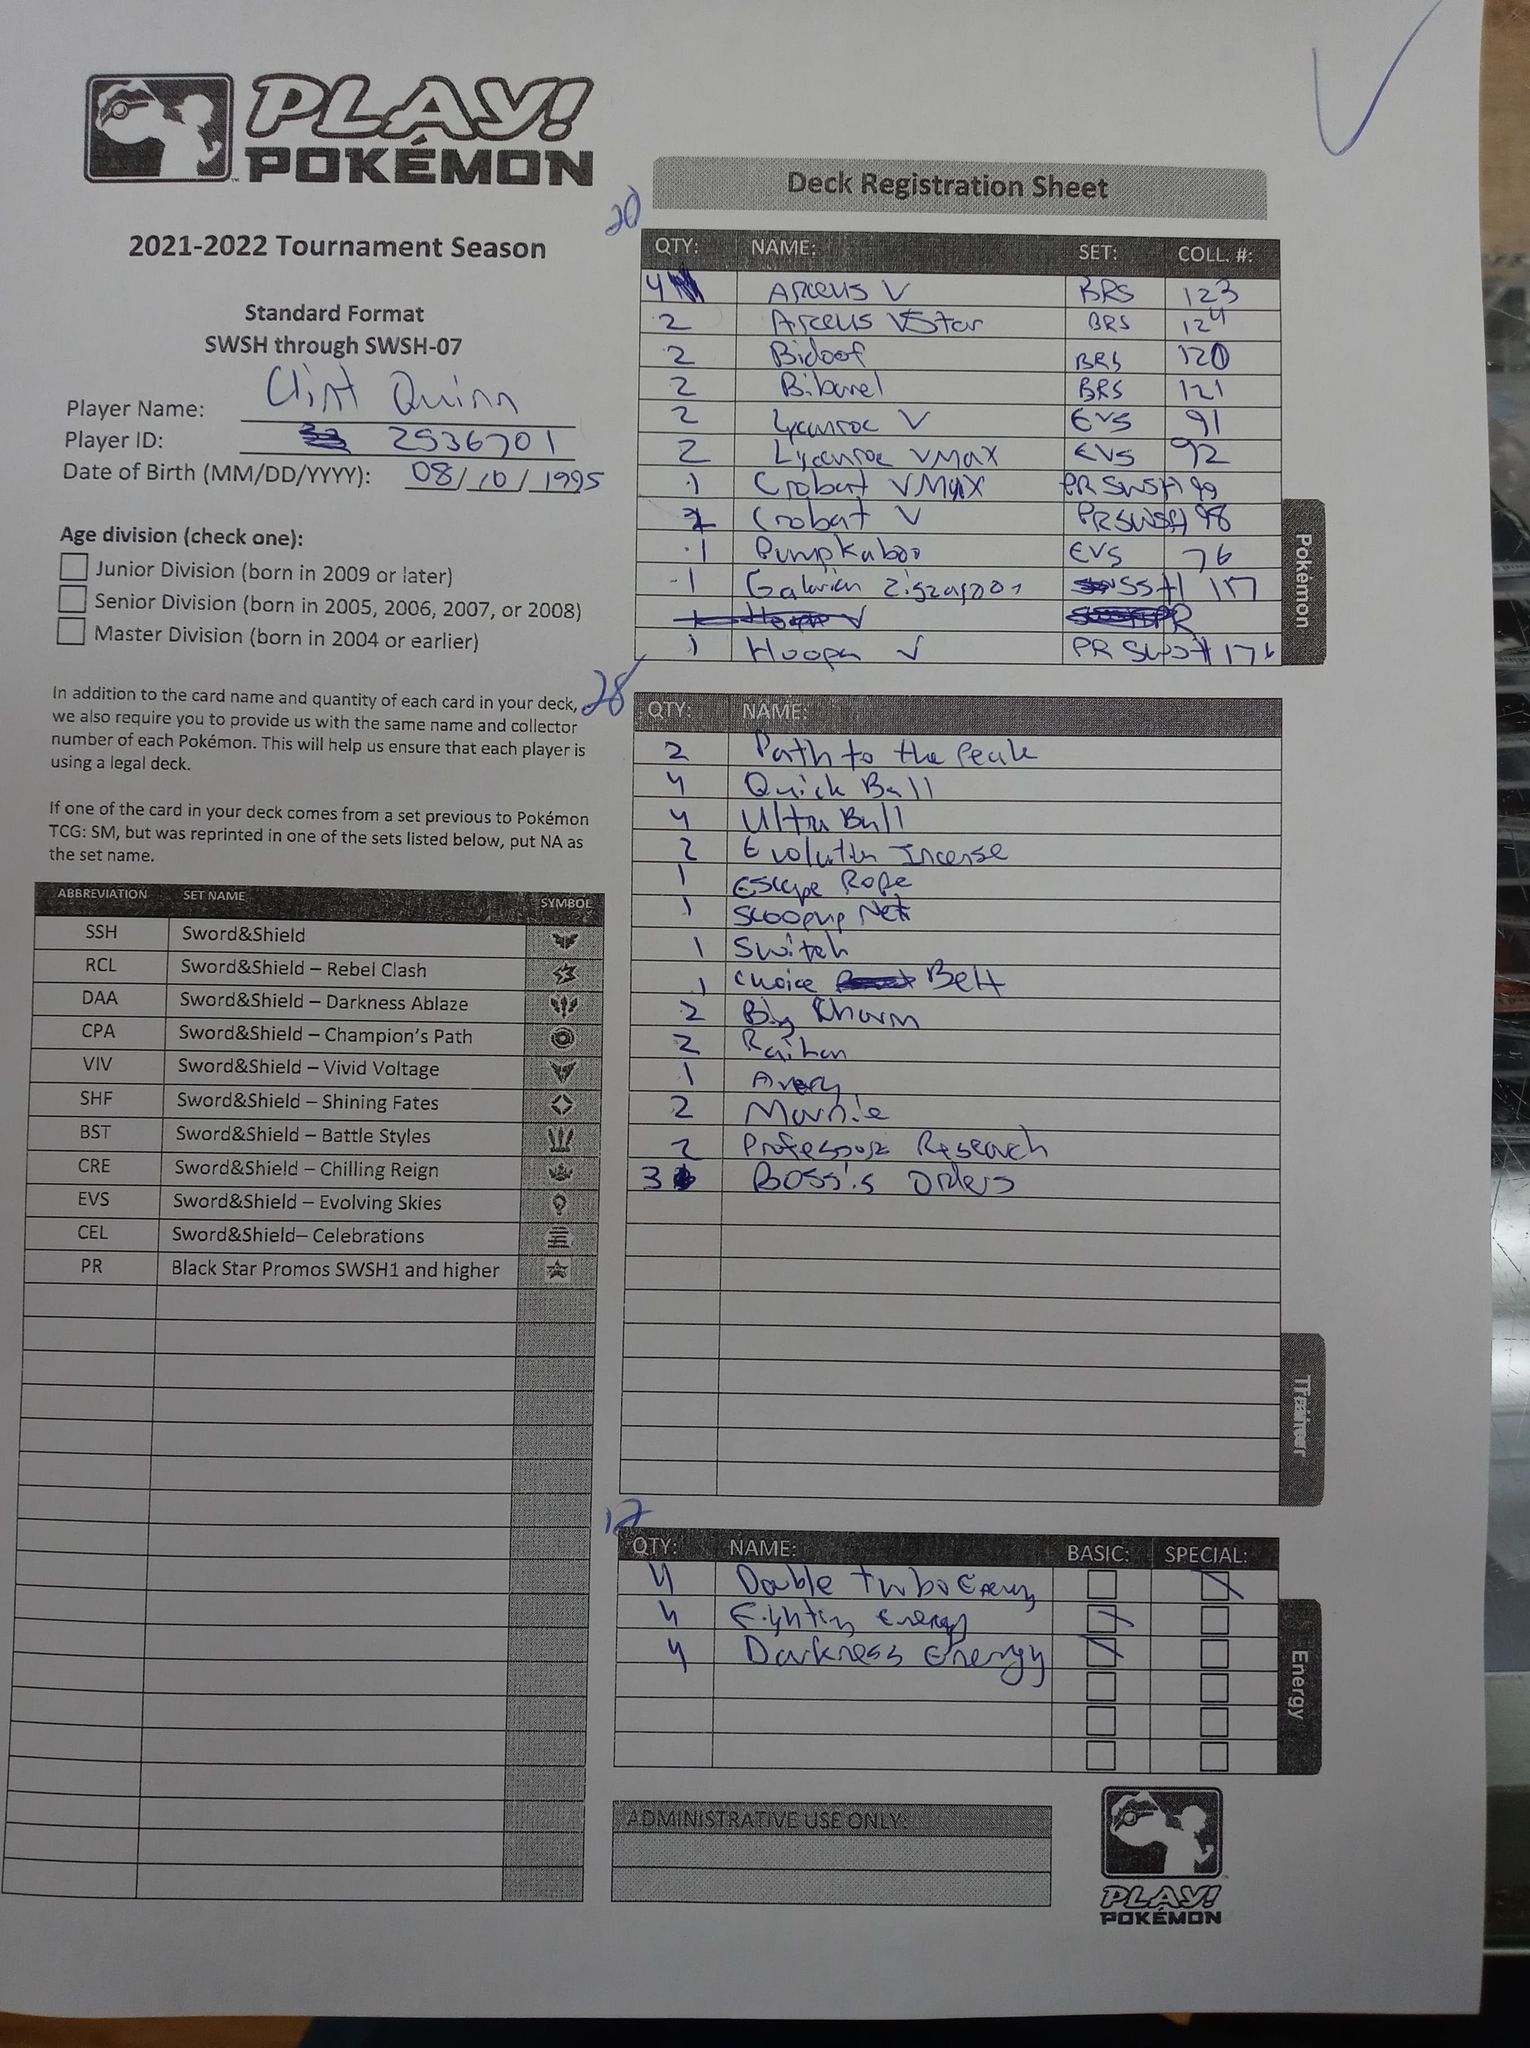 PLAY!
POKÉMON
2021-2022 Tournament Season
Standard Format
SWSH through SWSH-07
Player Name: Clint Quinn
Player ID: 2536701
Date of Birth (MM/DD/YYYY): 08/10/1995
Age division (check one):
Junior Division (born in 2009 or later)
Senior Division (born in 2005, 2006, 2007, or 2008)
Master Division (born in 2004 or earlier)
In addition to the card name and quantity of each card in your deck,
we also require you to provide us with the same name and collector
number of each Pokémon. This will help us ensure that each player is
using a legal deck.
If one of the card in your deck comes from a set previous to Pokémon
TCG: SM, but was reprinted in one of the sets listed below, put NA as
the set name.
ABBREVIATION SET NAME SYMBOL
SSH Sword&Shield
RCL Sword&Shield – Rebel Clash
DAA Sword&Shield – Darkness Ablaze
CPA Sword&Shield – Champion's Path
VIV Sword&Shield – Vivid Voltage
SHF Sword&Shield – Shining Fates
BST Sword&Shield – Battle Styles
CRE Sword&Shield – Chilling Reign
EVS Sword&Shield – Evolving Skies
CEL Sword&Shield– Celebrations
PR Black Star Promos SWSH1 and higher
Deck Registration Sheet
20
QTY: NAME: SET: COLL. #:
4 Arceus V BRS 123
2 Arceus VStar BRS 124
2 Bidoof BRS 120
2 Bibarel BRS 121
2 Lycanroc V EVS 91
2 Lycanroc VMAX EVS 92
1 Crobat VMAX PR SWSH 99
2 Crobat V PRSWSH 98
1 Pumpkaboo EVS 76
1 Galarian Zigzagoon SSH 117
1 Hoopa V PR SWSH 176
Pokemon
28
QTY: NAME:
2 Path to the Peak
4 Quick Ball
4 Ultra Ball
2 Evolution Incense
1 Escape Rope
1 Scoopup Net
1 Switch
1 Choice Belt
2 Big Kharm
2 Raihan
1 Avery
2 Marnie
2 Professors Research
3 Boss's Orders
Trainer
12
QTY: NAME: BASIC: SPECIAL:
4 Double turbo Energy
4 Fighting Energy
4 Darkness Energy
Energy
ADMINISTRATIVE USE ONLY:
PLAY!
POKÉMON